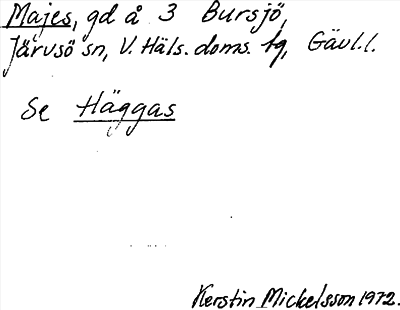 Majes, gd å 3 Bursjö,
Järvsö sn, V. Häls. doms. tg, Gävl.l.
Se Häggas
Kerstin Mickelsson 1972.